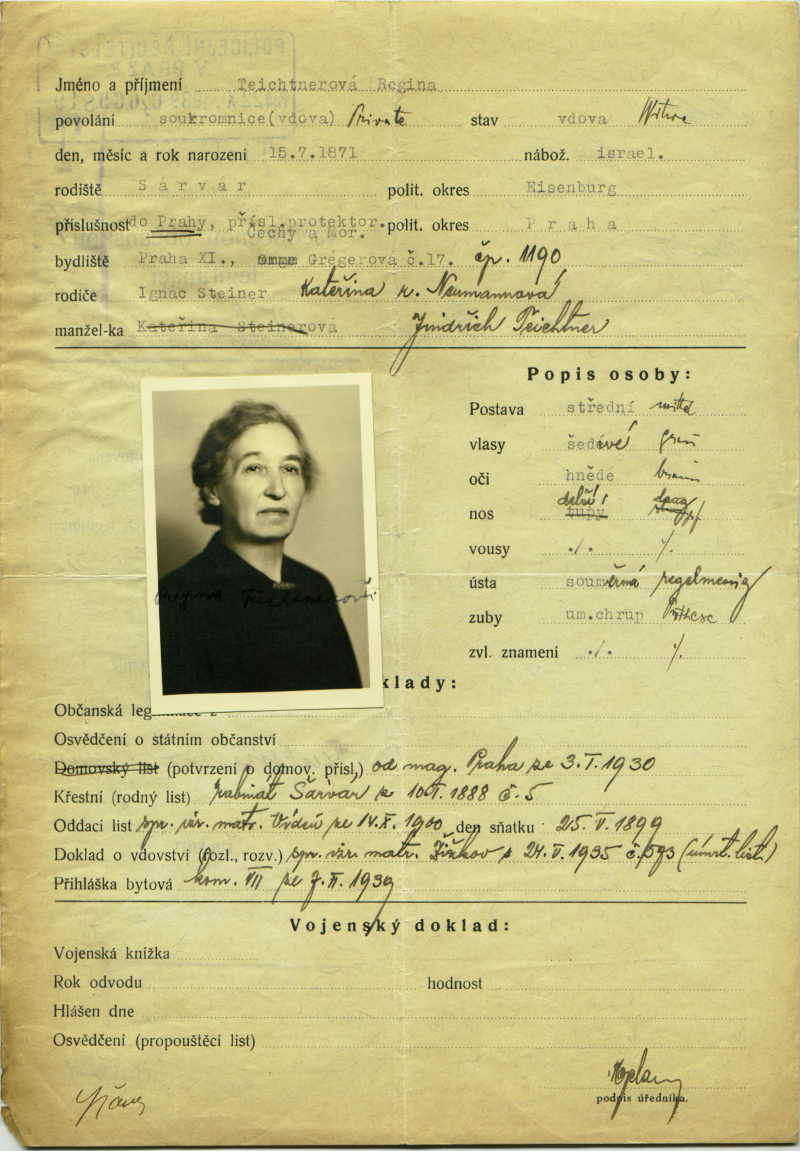 POLICEJNÍ ŘEDITELSTVÍ
V PRAZE
Jméno a příjmení Teichtnerová Regina
povolání soukromnice(vdova) Private stav vdova Witwe
den, měsíc a rok narození 15.7.1871 nábož. israel.
rodiště Sárvár polit. okres Eisenburg
příslušnost do Prahy, přísl.protektor. polit. okres Praha
Čechy a Mor.
bydliště Praha XI., Gregerova č.17. čp. 1190
rodiče Ignác Steiner Kateřina r. Neumannová
manžel-ka Kateřina Steinerova Jindřich Teichtner
Popis osoby:
Postava střední mittel
vlasy šedivé grau
oči hnědé braun
nos tupý delší
vousy ./. ./.
ústa souměrná regelmässig
zuby um.chrup Prothese
zvl. znamení ./. ./.
klady:
Regina Teichtnerová
Občanská leg
Osvědčení o státním občanství
Domovský list (potvrzení o domov. přísl.) od mag. Praha ze 3.I.1930
Křestní (rodný list) rabinát Šárvár z 10.I.1888 č. 5
Oddací list spr. žir. matr. Vídeň ze 14.X.1900 den sňatku 25.V.1899
Doklad o vdovství (rozl., rozv.) matr. Žižkov z 24.V.1935 (úmrt. list.)
Přihláška bytová kom. VII ze 7.II.1939
Vojenský doklad:
Vojenská knížka
Rok odvodu hodnost
Hlášen dne
Osvědčení (propouštěcí list)
podpis úředníka.